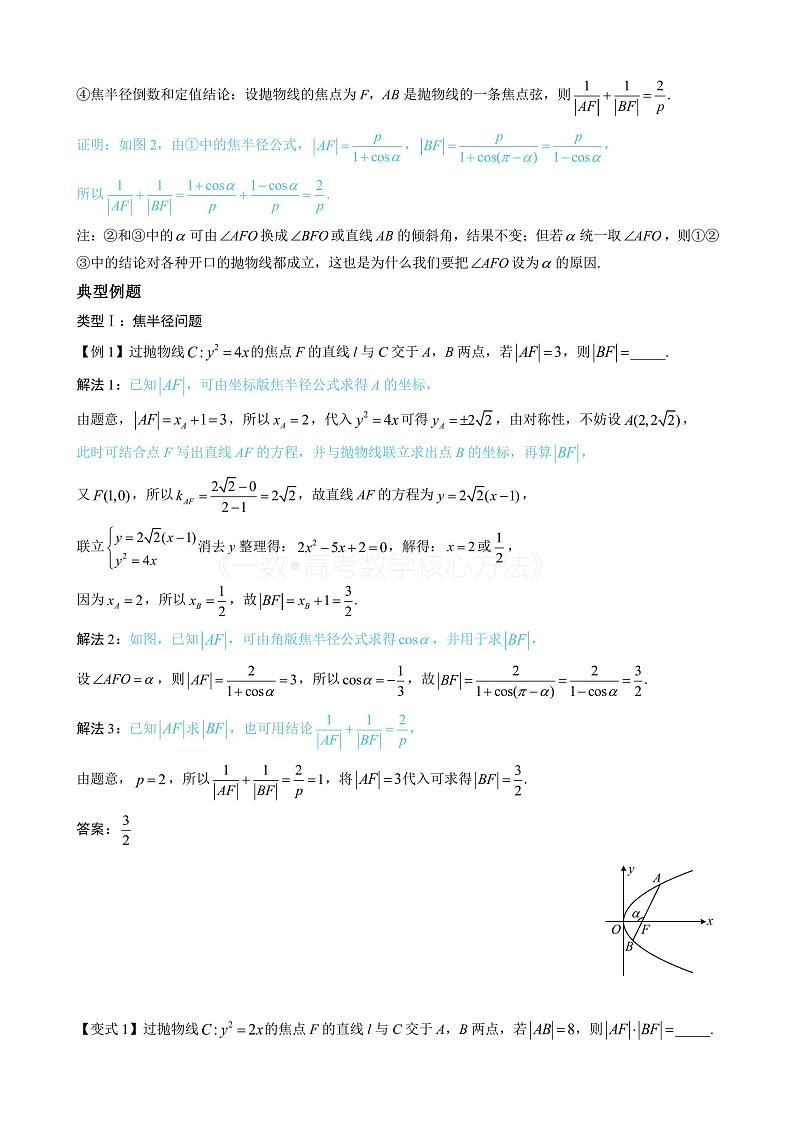 ④焦半径倒数和定值结论：设抛物线的焦点为 F，AB 是抛物线的一条焦点弦，则 $\frac{1}{|AF|}+\frac{1}{|BF|}=\frac{2}{p}$.
证明：如图 2，由①中的焦半径公式，$|AF|=\frac{p}{1+\cos\alpha}$，$|BF|=\frac{p}{1+\cos(\pi-\alpha)}=\frac{p}{1-\cos\alpha}$，
所以 $\frac{1}{|AF|}+\frac{1}{|BF|}=\frac{1+\cos\alpha}{p}+\frac{1-\cos\alpha}{p}=\frac{2}{p}$.
注：②和③中的 α 可由∠AFO 换成∠BFO 或直线 AB 的倾斜角，结果不变；但若 α 统一取∠AFO，则①②
③中的结论对各种开口的抛物线都成立，这也是为什么我们要把∠AFO 设为 α 的原因.
典型例题
类型Ⅰ：焦半径问题
【例 1】过抛物线 $C:y^2=4x$ 的焦点 F 的直线 l 与 C 交于 A，B 两点，若 $|AF|=3$，则 $|BF|=$_____.
解法 1：已知 $|AF|$，可由坐标版焦半径公式求得 A 的坐标，
由题意，$|AF|=x_A+1=3$，所以 $x_A=2$，代入 $y^2=4x$ 可得 $y_A=\pm2\sqrt{2}$，由对称性，不妨设 $A(2,2\sqrt{2})$，
此时可结合点 F 写出直线 AF 的方程，并与抛物线联立求出点 B 的坐标，再算 $|BF|$，
又 $F(1,0)$，所以 $k_{AF}=\frac{2\sqrt{2}-0}{2-1}=2\sqrt{2}$，故直线 AF 的方程为 $y=2\sqrt{2}(x-1)$，
联立 $\begin{cases}y=2\sqrt{2}(x-1)\\y^2=4x\end{cases}$ 消去 y 整理得：$2x^2-5x+2=0$，解得：$x=2$ 或 $\frac{1}{2}$，
《一数•高考数学核心方法》
因为 $x_A=2$，所以 $x_B=\frac{1}{2}$，故 $|BF|=x_B+1=\frac{3}{2}$.
解法 2：如图，已知 $|AF|$，可由角版焦半径公式求得 $\cos\alpha$，并用于求 $|BF|$，
设∠AFO=α，则 $|AF|=\frac{2}{1+\cos\alpha}=3$，所以 $\cos\alpha=-\frac{1}{3}$，故 $|BF|=\frac{2}{1+\cos(\pi-\alpha)}=\frac{2}{1-\cos\alpha}=\frac{3}{2}$.
解法 3：已知 $|AF|$ 求 $|BF|$，也可用结论 $\frac{1}{|AF|}+\frac{1}{|BF|}=\frac{2}{p}$，
由题意，$p=2$，所以 $\frac{1}{|AF|}+\frac{1}{|BF|}=\frac{2}{p}=1$，将 $|AF|=3$ 代入可求得 $|BF|=\frac{3}{2}$.
答案：$\frac{3}{2}$
y
A
α
O F x
B
【变式 1】过抛物线 $C:y^2=2x$ 的焦点 F 的直线 l 与 C 交于 A，B 两点，若 $|AB|=8$，则 $|AF|\cdot|BF|=$_____.